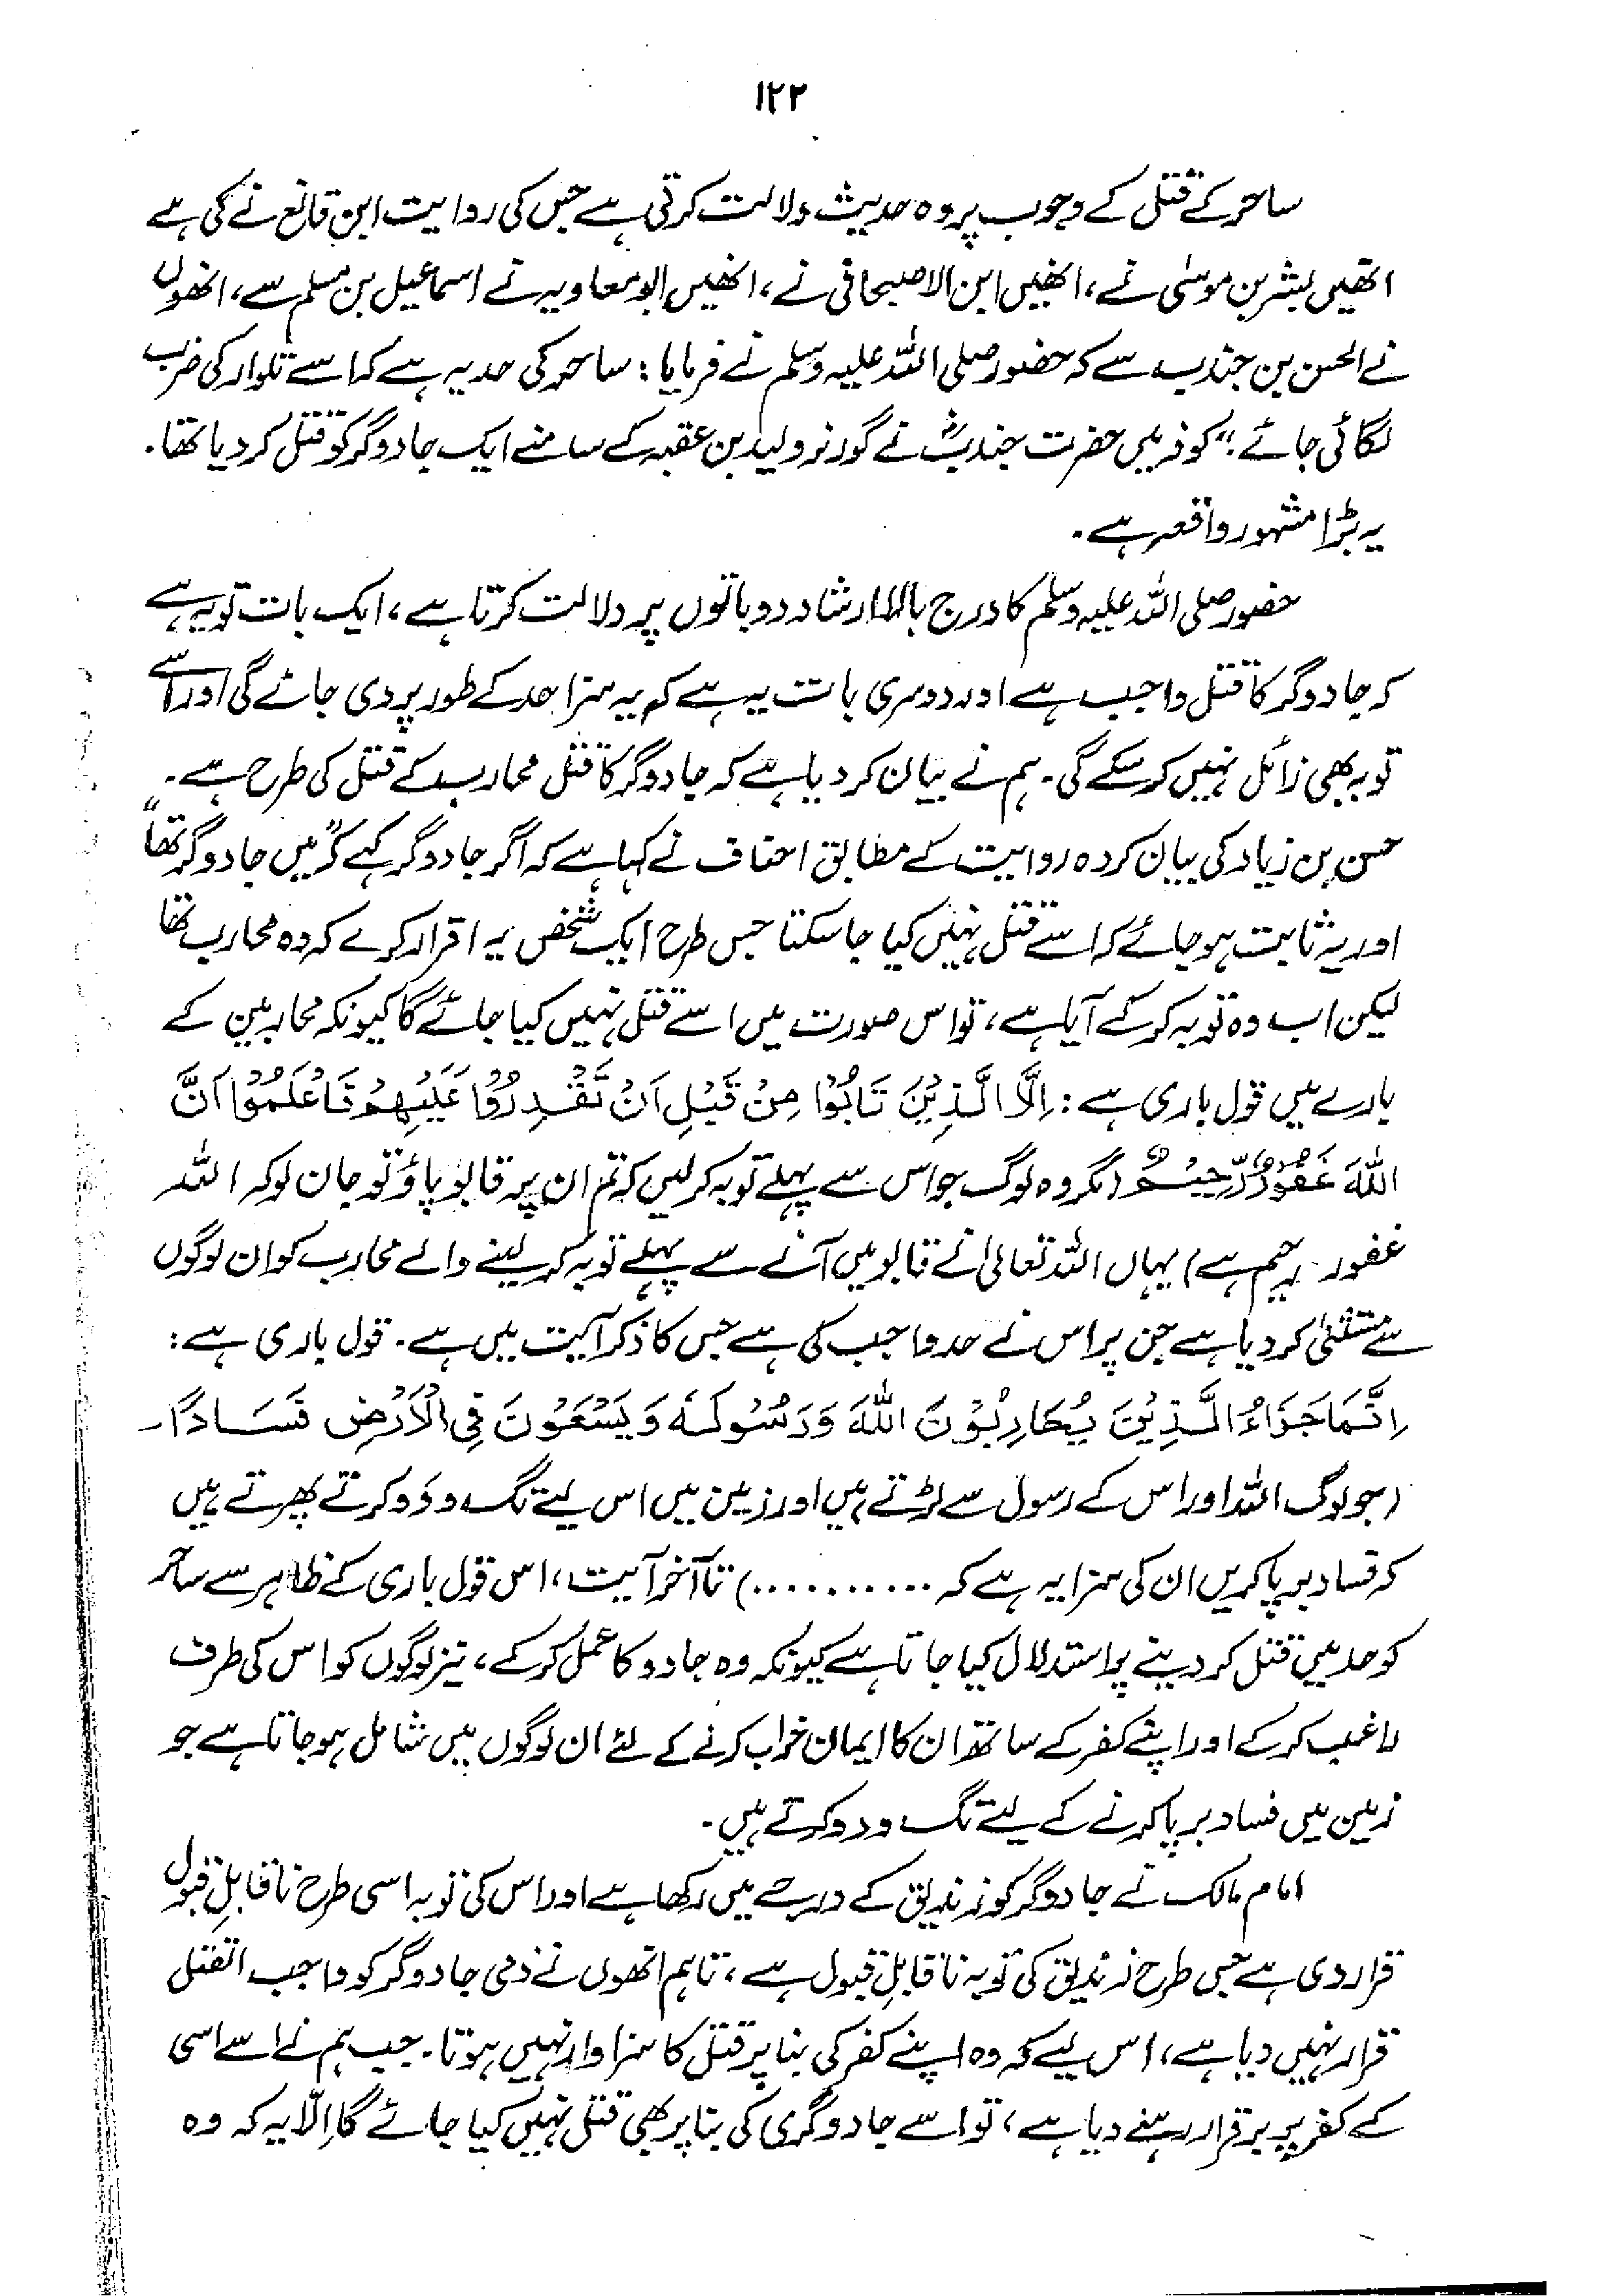 ۱۲۲
ساحر کے قتل کے وجوب پر وہ حدیث دلالت کرتی ہے جس کی روایت ابن قانع نے کی ہے
انھیں بشر بن موسیٰ نے، انھیں ابن الاصبحانی نے، انھیں ابو معاویہ نے اسماعیل بن مسلم سے، انھوں
نے الحسن بن جندب سے کہ حضور صلی اللہ علیہ وسلم نے فرمایا: ساحر کی حد یہ ہے کہ اسے تلوار کی ضرب
لگائی جائے" کوفہ میں حضرت جندبؓ نے گورنر ولید بن عقبہ کے سامنے ایک جادوگر کو قتل کر دیا تھا۔
یہ بڑا مشہور واقعہ ہے۔
حضور صلی اللہ علیہ وسلم کا درج بالا ارشاد دو باتوں پر دلالت کرتا ہے، ایک بات تو یہ ہے
کہ جادوگر کا قتل واجب ہے اور دوسری بات یہ ہے کہ یہ سزا حد کے طور پر دی جائے گی اور اسے
توبہ بھی زائل نہیں کر سکے گی۔ ہم نے بیان کر دیا ہے کہ جادوگر کا قتل محارب کے قتل کی طرح ہے۔
حسن بن زیاد کی بیان کردہ روایت کے مطابق احناف نے کہا ہے کہ اگر جادوگر کہے کہ "میں جادوگر تھا"
اور یہ ثابت ہو جائے کہ اسے قتل نہیں کیا جا سکتا جس طرح ایک شخص یہ اقرار کرے کہ وہ محارب تھا
لیکن اب وہ توبہ کر کے آیا ہے، تو اس صورت میں اسے قتل نہیں کیا جائے گا کیونکہ محاربین کے
بارے میں قول باری ہے: اِلَّا الَّذِیْنَ تَابُوْا مِنْ قَبْلِ اَنْ تَقْدِرُوْا عَلَیْهِمْ فَاعْلَمُوْا اَنَّ
اللّٰهَ غَفُوْرٌ رَّحِیْمٌ (مگر وہ لوگ جو اس سے پہلے توبہ کر لیں کہ تم ان پر قابو پاؤ تو جان لو کہ اللہ
غفور رحیم ہے) یہاں اللہ تعالیٰ نے قابو میں آنے سے پہلے توبہ کر لینے والے محارب کو ان لوگوں
سے مستثنیٰ کر دیا ہے جن پر اس نے حد واجب کی ہے جس کا ذکر آیت میں ہے۔ قول باری ہے:
اِنَّمَا جَزَاءُ الَّذِیْنَ یُحَارِبُوْنَ اللّٰهَ وَرَسُوْلَهٗ وَیَسْعَوْنَ فِی الْاَرْضِ فَسَادًا۔
(جو لوگ اللہ اور اس کے رسول سے لڑتے ہیں اور زمین میں اس لیے تگ و دَو کرتے پھرتے ہیں
کہ فساد برپا کریں ان کی سزا یہ ہے کہ ...........) تا آخر آیت، اس قول باری کے ظاہر سے ساحر
کو حد میں قتل کر دینے پر استدلال کیا جاتا ہے کیونکہ وہ جادو کا عمل کر کے، نیز لوگوں کو اس کی طرف
راغب کر کے اور اپنے کفر کے ساتھ ان کا ایمان خراب کرنے کے لئے ان لوگوں میں شامل ہو جاتا ہے جو
زمین میں فساد برپا کرنے کے لیے تگ و دو کرتے ہیں۔
امام مالک نے جادوگر کو زندیق کے درجے میں رکھا ہے اور اس کی توبہ اسی طرح ناقابلِ قبول
قرار دی ہے جس طرح زندیق کی توبہ ناقابلِ قبول ہے، تاہم انھوں نے ذمی جادوگر کو واجب القتل
قرار نہیں دیا ہے، اس لیے کہ وہ اپنے کفر کی بنا پر قتل کا سزاوار نہیں ہوتا۔ جب ہم نے اسے اسی
کے کفر پر برقرار رہنے دیا ہے، تو اسے جادوگری کی بنا پر بھی قتل نہیں کیا جائے گا اِلّا یہ کہ وہ